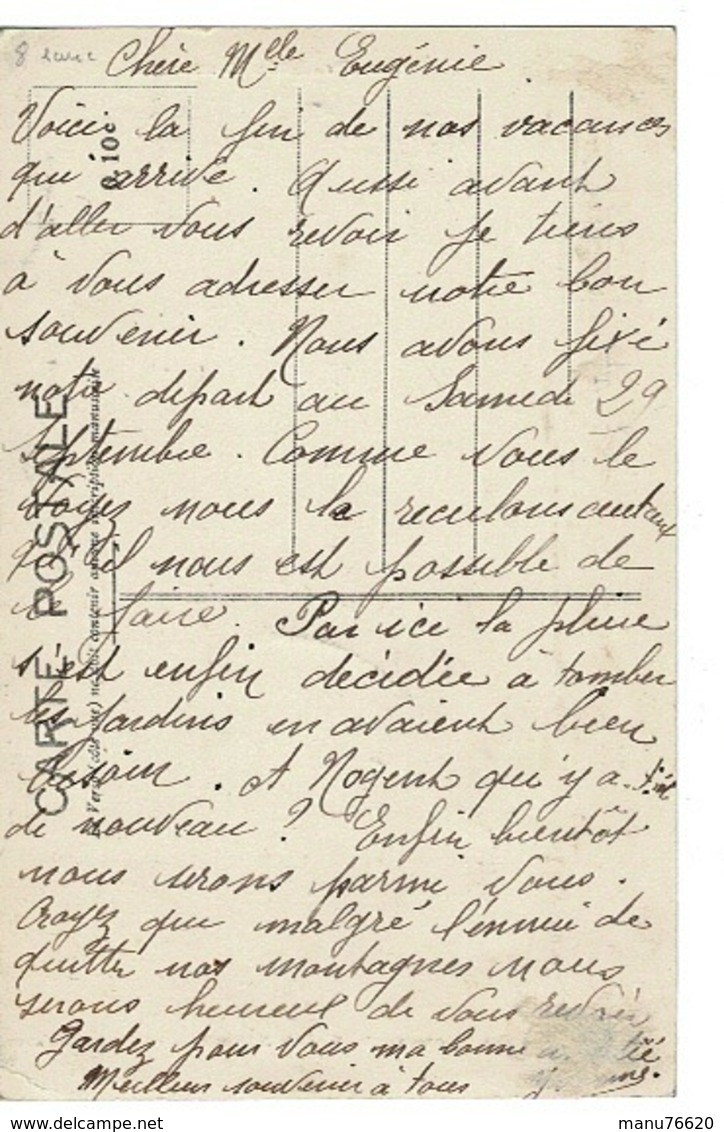 Chère Mlle Eugénie
Voici la fin de nos vacances
qui arrive. Aussi avant
d'aller vous revoir je tiens
à vous adresser notre bon
souvenir. Nous avons fixé
notre départ au Samedi 29
Septembre. Comme vous le
voyez nous le reculons autant
qu'il nous est possible de
le faire. Par ici la pluie
s'est enfin décidée à tomber
les jardins en avaient bien
besoin. A Nogent qu'y a-t-il
de nouveau? Enfin bientôt
nous serons parmi vous.
Croyez que malgré l'ennui de
quitter nos montagnes nous
serons heureux de vous revoir
Gardez pour vous ma bonne amitié
Meilleur souvenir à tous
CARTE POSTALE
0.10c
manu76620